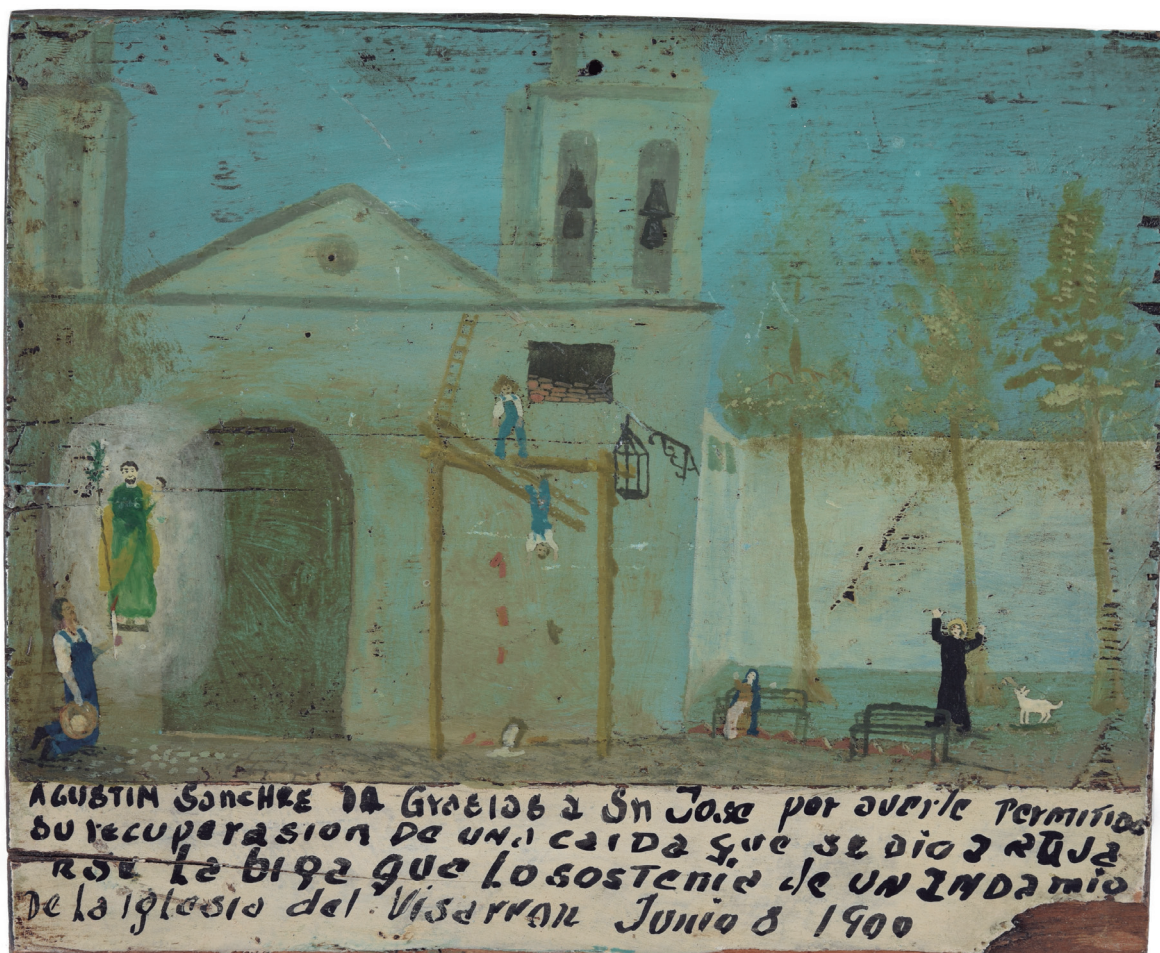 AGUSTIN SancHEZ DA Grasias a Sn Jose por averle PERMITIDO
su recuperasion DE UNA CAIDA que se DIO A RAJA
RSE La biga que Lo sostenia de UN ANDamio
De La iglesia del Visarron Junio 8 1900